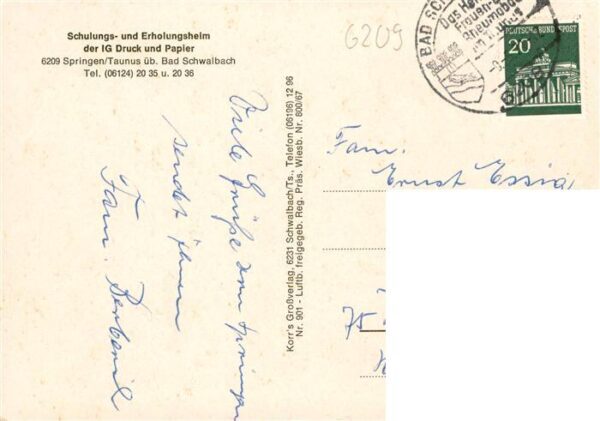 Schulungs- und Erholungsheim
der IG Druck und Papier
6209 Springen/Taunus üb. Bad Schwalbach
Tel. (06124) 20 35 u. 20 36
6209
BAD SC
Das He
Frauen-
Rheuma
DEUTSCHE BUNDESPOST
20
Viele Grüße aus Springen
sendet ihnen
Fam.
Korr's Großverlag, 6231 Schwalbach/Ts., Telefon (06196) 12 96
Nr. 901 - Luftb. freigegeb. Reg. Präs. Wiesb. Nr. 800/67
Fam.
Ernst Essig
75